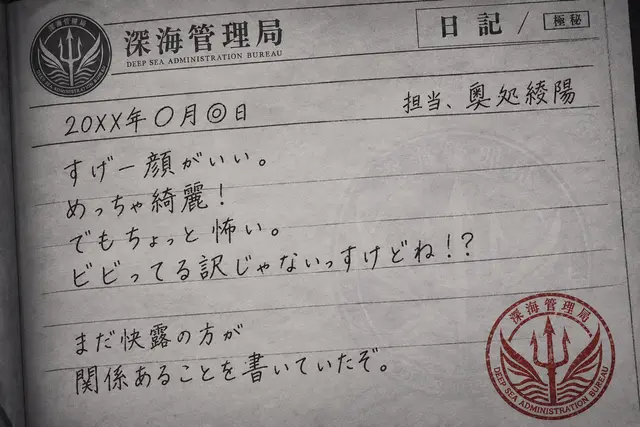 深海管理局
DEEP SEA ADMINISTRATION BUREAU
日記 /
極秘
20XX年〇月◎日
担当、奥処綾陽
すげー顔がいい。
めっちゃ綺麗!
でもちょっと怖い。
ビビってる訳じゃないっすけどね!?
まだ快露の方が
関係あることを書いていたぞ。
深海管理局
DEEP SEA ADMINISTRATION BUREAU